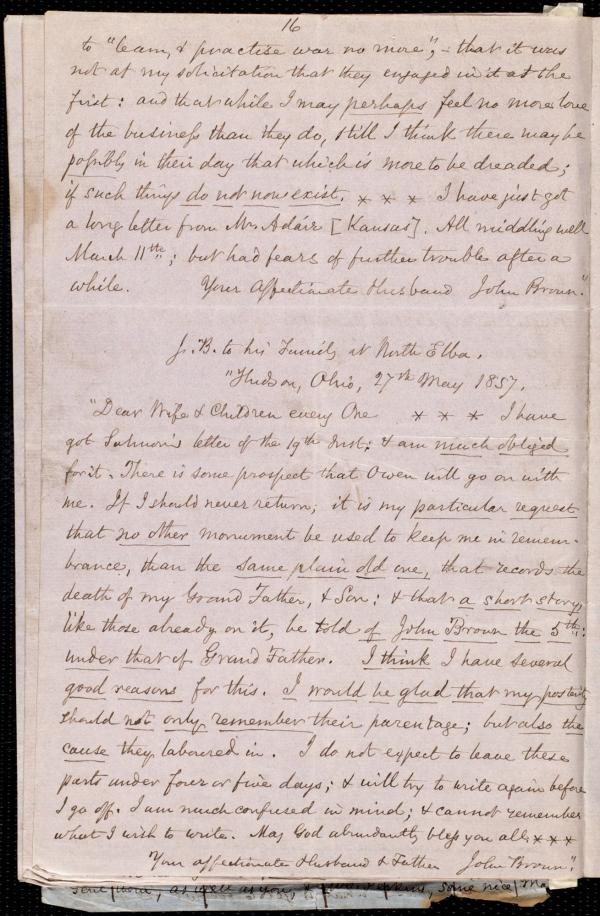 16
to "learn, & practise war no more"; - that it was
not at my solicitation that they engaged in it at the
first: and that while I may perhaps feel no more love
of the business than they do, still I think there may be
possibly in their day that which is more to be dreaded;
if such things do not now exist. * * * I have just got
a long letter from Mr Adair [Kansas]. All middling well
March 11th; but had fears of further trouble after a
while. Your Affectionate Husband John Brown."
J. B. to his Family at North Elba.
"Hudson, Ohio, 27th May 1857.
"Dear Wife & Children every One * * * I have
got Salmon's letter of the 19th Inst: & am much obliged
for it. There is some prospect that Owen will go on with
me. If I should never return; it is my particular request
that no other monument be used to keep me in remem-
brance, than the same plain old one, that records the
death of my Grand Father, & Son: & that a short story,
like those already on it, be told of John Brown the 5th:
under that of Grand Father. I think I have several
good reasons for this. I would be glad that my posterity
should not only remember their parentage; but also the
cause they laboured in. I do not expect to leave these
parts under four or five days; & will try to write again before
I go off. I am much confused in mind; & cannot remember
what I wish to write. May God abundantly bless you all * * *
Your affectionate Husband & Father John Brown".
as well as you, some nice